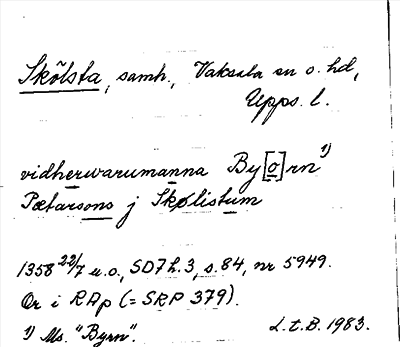 Skölsta, samh., Vaksala sn o. hd,
Upps. l.
vidherwarumanna By[o]rn 1)
Pætarsons j Skølistum
1358 22/7 u.o., SD 7 h. 3, s. 84, nr 5949.
Or i RAp (= SRP 379).
1) Ms. "Byrn". L.t.B. 1983.